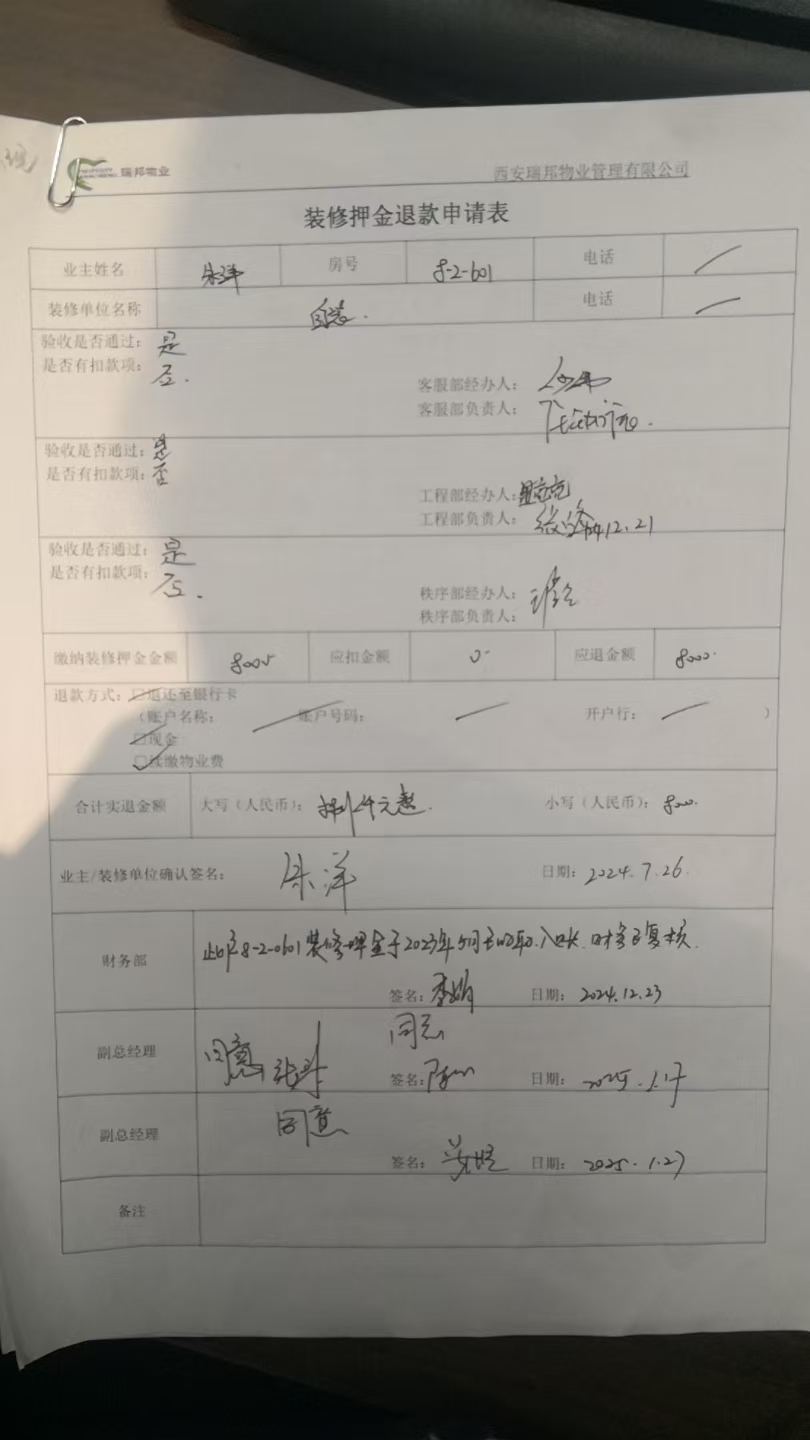 瑞邦物业
西安瑞邦物业管理有限公司
装修押金退款申请表
业主姓名 朱洋 房号 8-2-601 电话
装修单位名称 自装. 电话
验收是否通过：是
是否有扣款项：否.
客服部经办人：
客服部负责人：
验收是否通过：是
是否有扣款项：否
工程部经办人：
工程部负责人： 12.21
验收是否通过：是
是否有扣款项：否.
秩序部经办人：
秩序部负责人：
缴纳装修押金金额 8000 应扣金额 0 应退金额 8000.
退款方式：□退还至银行卡
（账户名称： 账户号码： 开户行： ）
□现金
□续缴物业费
合计实退金额 大写（人民币）：捌仟元整. 小写（人民币）：8000.
业主/装修单位确认签名： 朱洋 日期：2024.7.26.
财务部 此户8-2-0601装修押金于2023年 入账.财务已复核.
签名：李娟 日期：2024.12.23
副总经理 同意 同意
签名： 日期：2025.1.17
副总经理 同意
签名： 日期：2025.1.27
备注